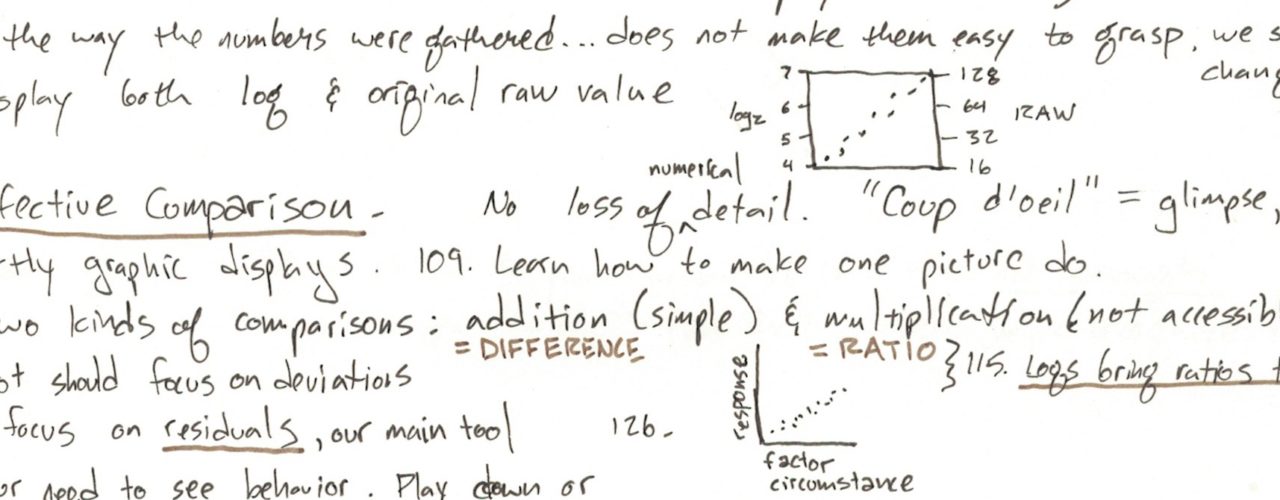 the way the numbers were gathered... does not make them easy to grasp, we s
chang
splay both log & original raw value
7 128
log2 6 64 RAW
5 32
4 16
numerical
fective Comparison - No loss of ^ detail. "Coup d'oeil" = glimpse,
tly graphic displays. 109. Learn how to make one picture do.
wo kinds of comparisons: addition (simple) & multiplication (not accessib
= DIFFERENCE = RATIO } 115. Logs bring ratios t
ot should focus on deviations
response
focus on residuals, our main tool 126.
factor
circumstance
or need to see behavior. Play down or